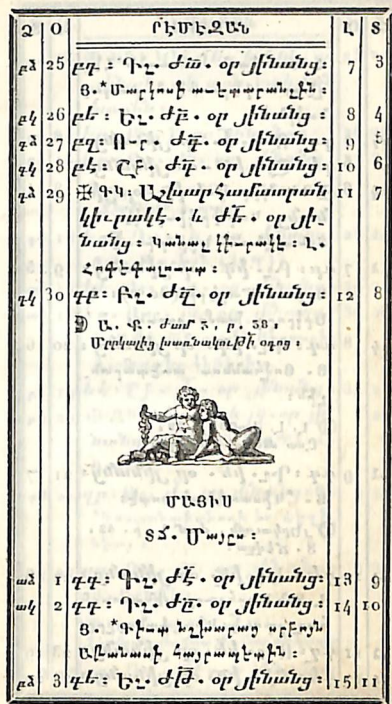 Զ Օ ՐԷՄԷԶԱՆ Լ Տ
բձ 25 բգ ։ Գշ․ ժա․ օր յինանց ։ 7 3
Յ․ *Մարկոսի աւետարանչին ։
բկ 26 բե ։ Եշ․ ժբ․ օր յինանց ։ 8 4
գձ 27 բզ ։ Ուր․ ժգ․ օր յինանց ։ 9 5
գկ 28 բէ ։ Շբ․ ժդ․ օր յինանց ։ 10 6
դձ 29 ✠ Գկ ։ Աշխարհամատրան 11 7
կիւրակէ․ և ժե․ օր յի
նանց ։ Կանաչ կիւրակէ ։ Լ․
Հոգեգալուստ ։
դկ 30 գբ ։ Բշ․ ժզ․ օր յինանց ։ 12 8
Մրրկալից խառնակութի օդոց ։
ՄԱՅԻՍ
ՏՃ․ Մայըս ։
աձ 1 գգ ։ Գշ․ ժէ․ օր յինանց ։ 13 9
ակ 2 գդ ։ Դշ․ ժը․ օր յինանց ։ 14 10
Յ․ *Գիւտ նշխարաց սրբոյն
Աթանասի Հայրապետին ։
բձ 3 գե ։ Եշ․ ժթ․ օր յինանց ։ 15 11